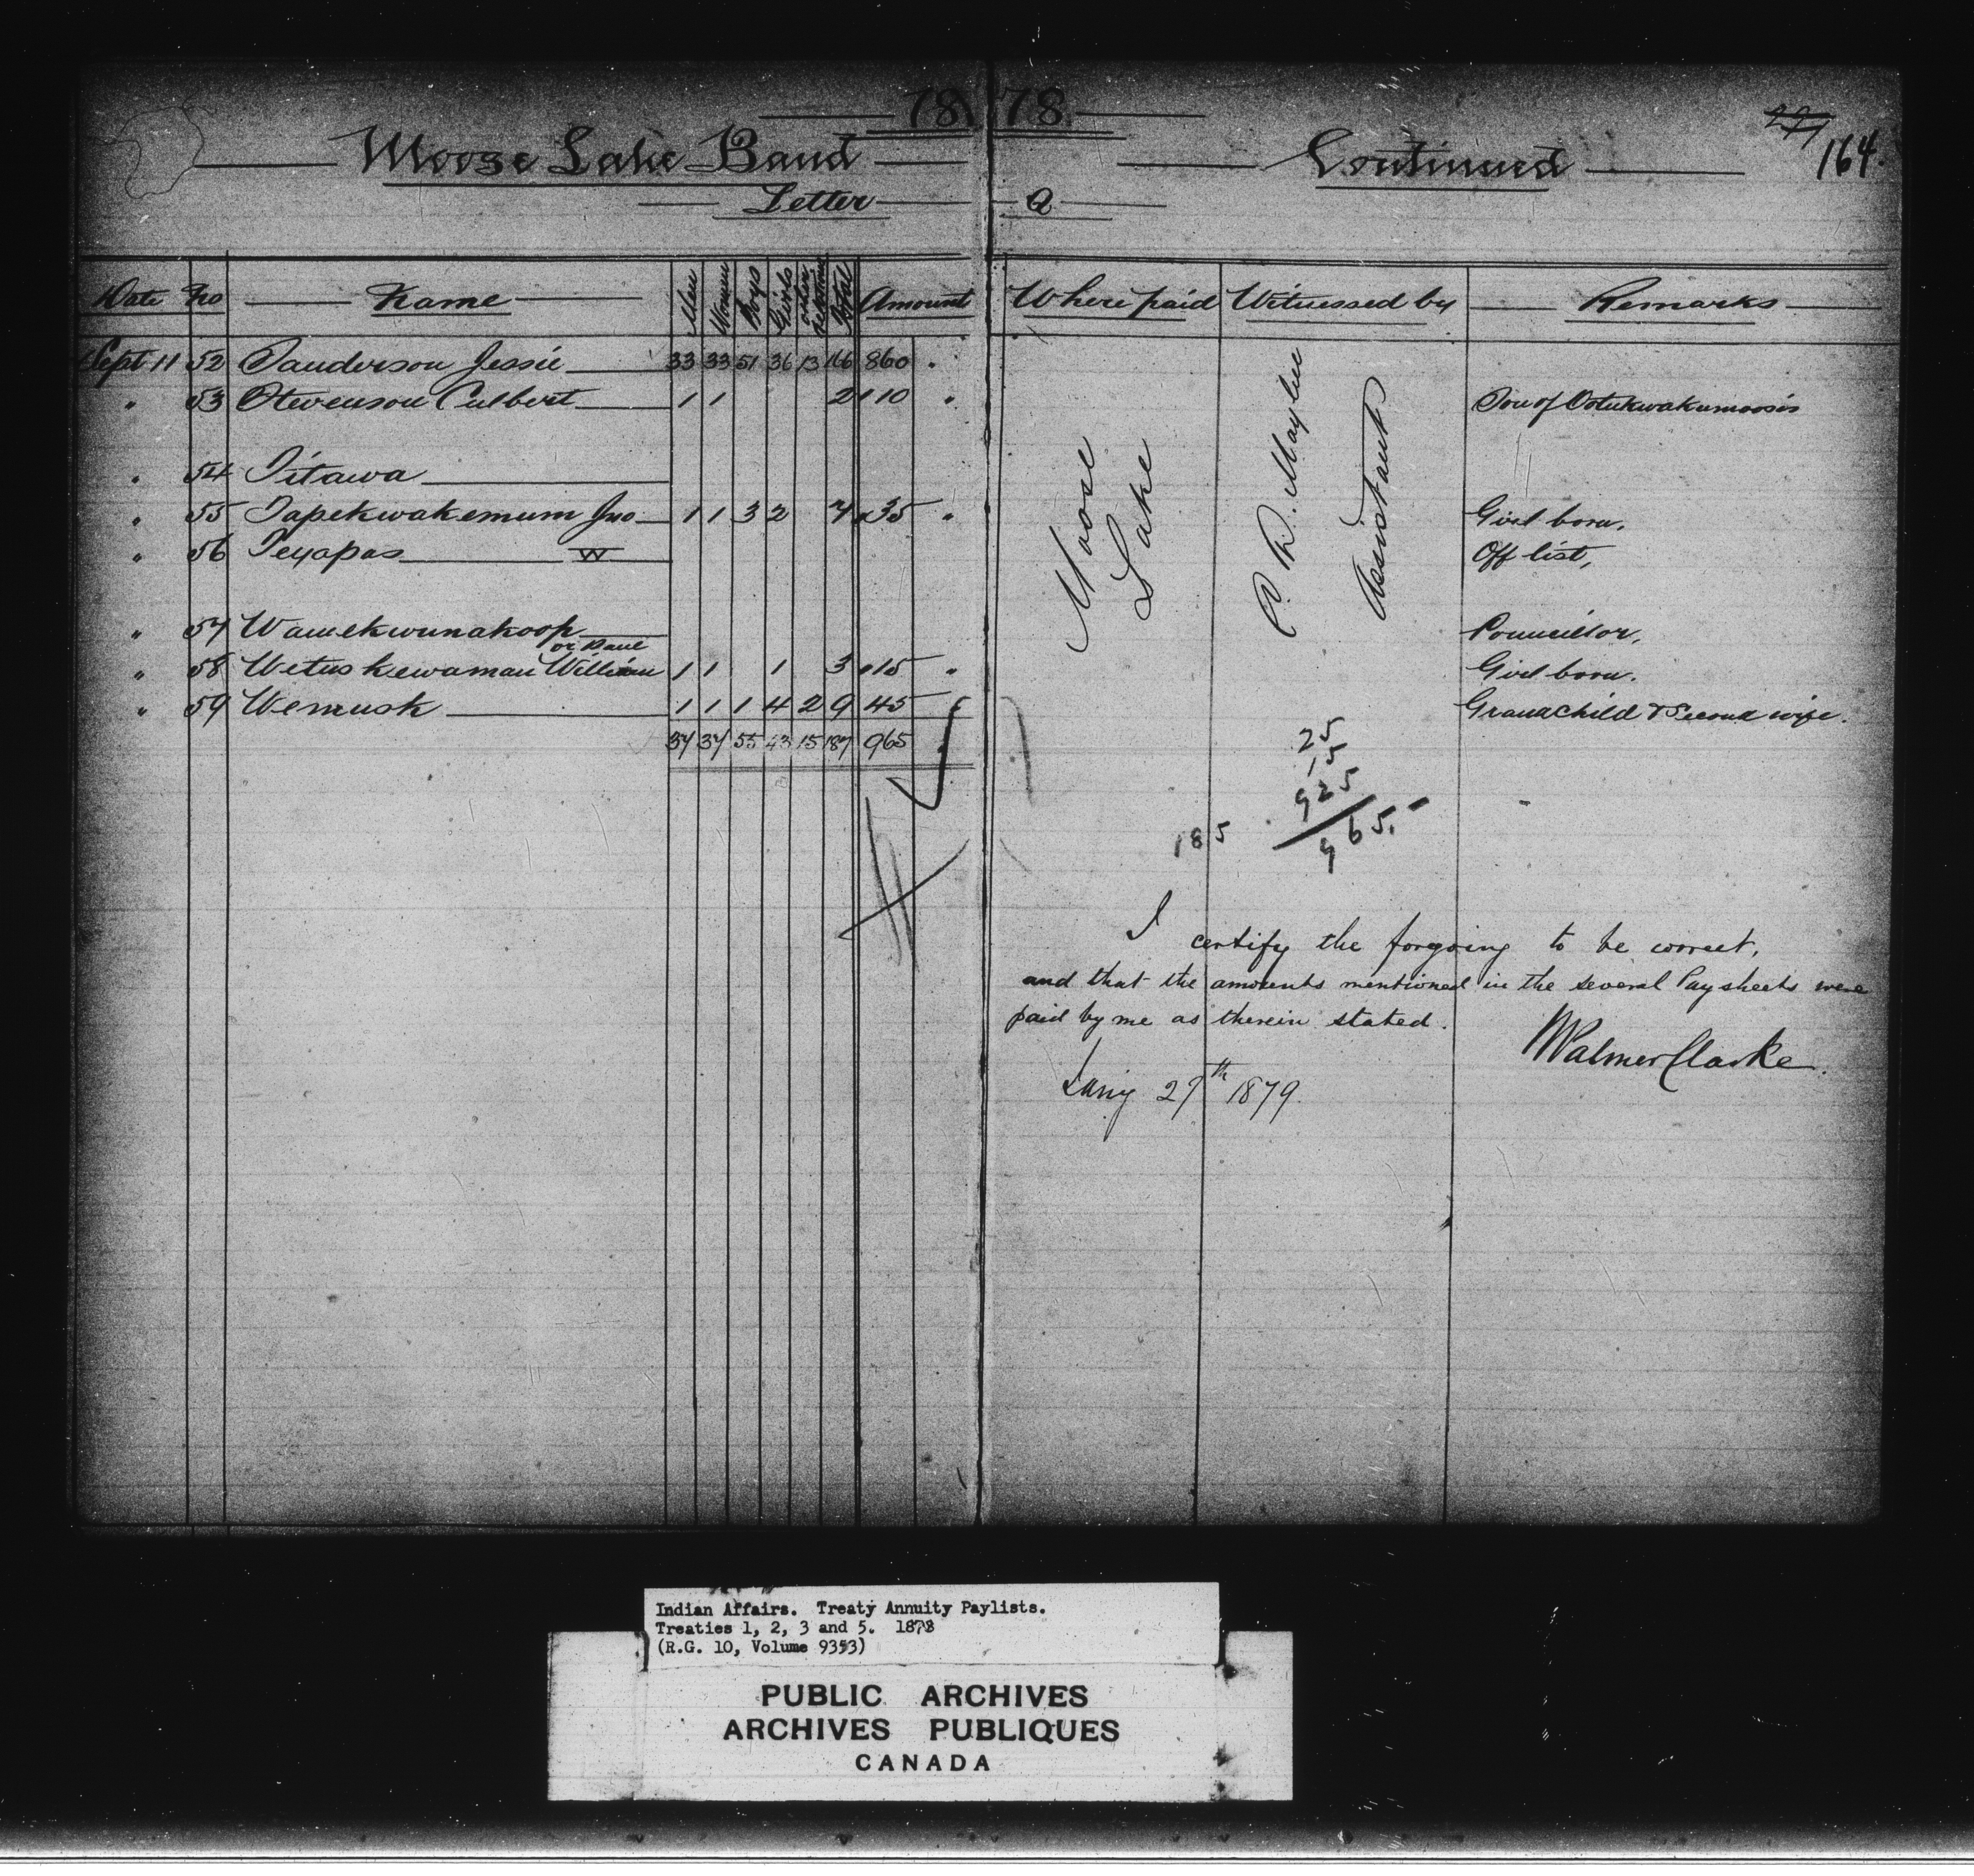 1878
Moose Lake Band Continued
227 164.
Letter Q
Date No Name Men Women Boys Girls other relations Total Amount Where paid Witnessed by Remarks
Sept 11 52 Sanderson Jessie 33 33 51 36 13 166 860 "
" 53 Stevenson Culbert 1 1 2 10 " Son of Ootukwakumoosis
" 54 Titawa
" 55 Tapekwakemum Jno 1 1 3 2 7 35 " Girl born.
" 56 Teyapas W Off list,
" 57 Wawekwunakoop Councillor,
or Paul
" 58 Wetuskewaman William 1 1 1 3 15 " Girl born.
" 59 Wemusk 1 1 1 4 2 9 45 " Grandchild & Second wife.
37 37 55 43 15 187 965 "
Moose
Lake
Assistant
25
15
925
185 965.-
I certify the forgoing to be correct,
and that the amounts mentioned in the several Pay sheets were
paid by me as therein stated.
Palmer Clarke.
27th 1879.
Indian Affairs. Treaty Annuity Paylists.
Treaties 1, 2, 3 and 5. 1878
(R.G. 10, Volume 9353)
PUBLIC ARCHIVES
ARCHIVES PUBLIQUES
CANADA